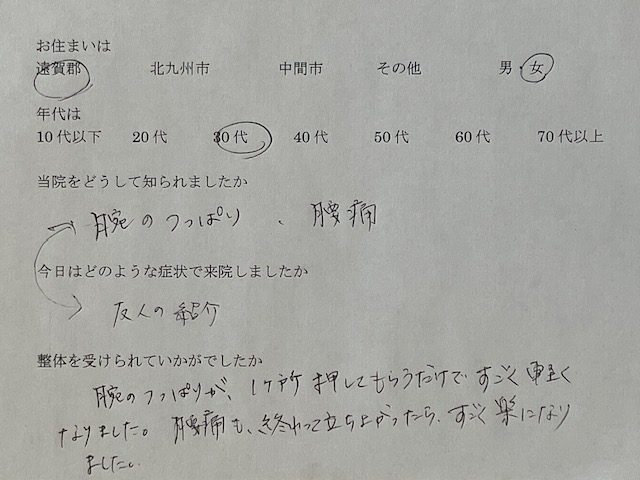 お住まいは
遠賀郡 北九州市 中間市 その他 男・女
年代は
10代以下 20代 30代 40代 50代 60代 70代以上
当院をどうして知られましたか
腕のつっぱり、腰痛
今日はどのような症状で来院しましたか
友人の紹介
整体を受けられていかがでしたか
腕のつっぱりが、1ヶ所押してもらうだけですごく軽く
なりました。腰痛も、終わって立ち上がったら、すごく楽になり
ました。